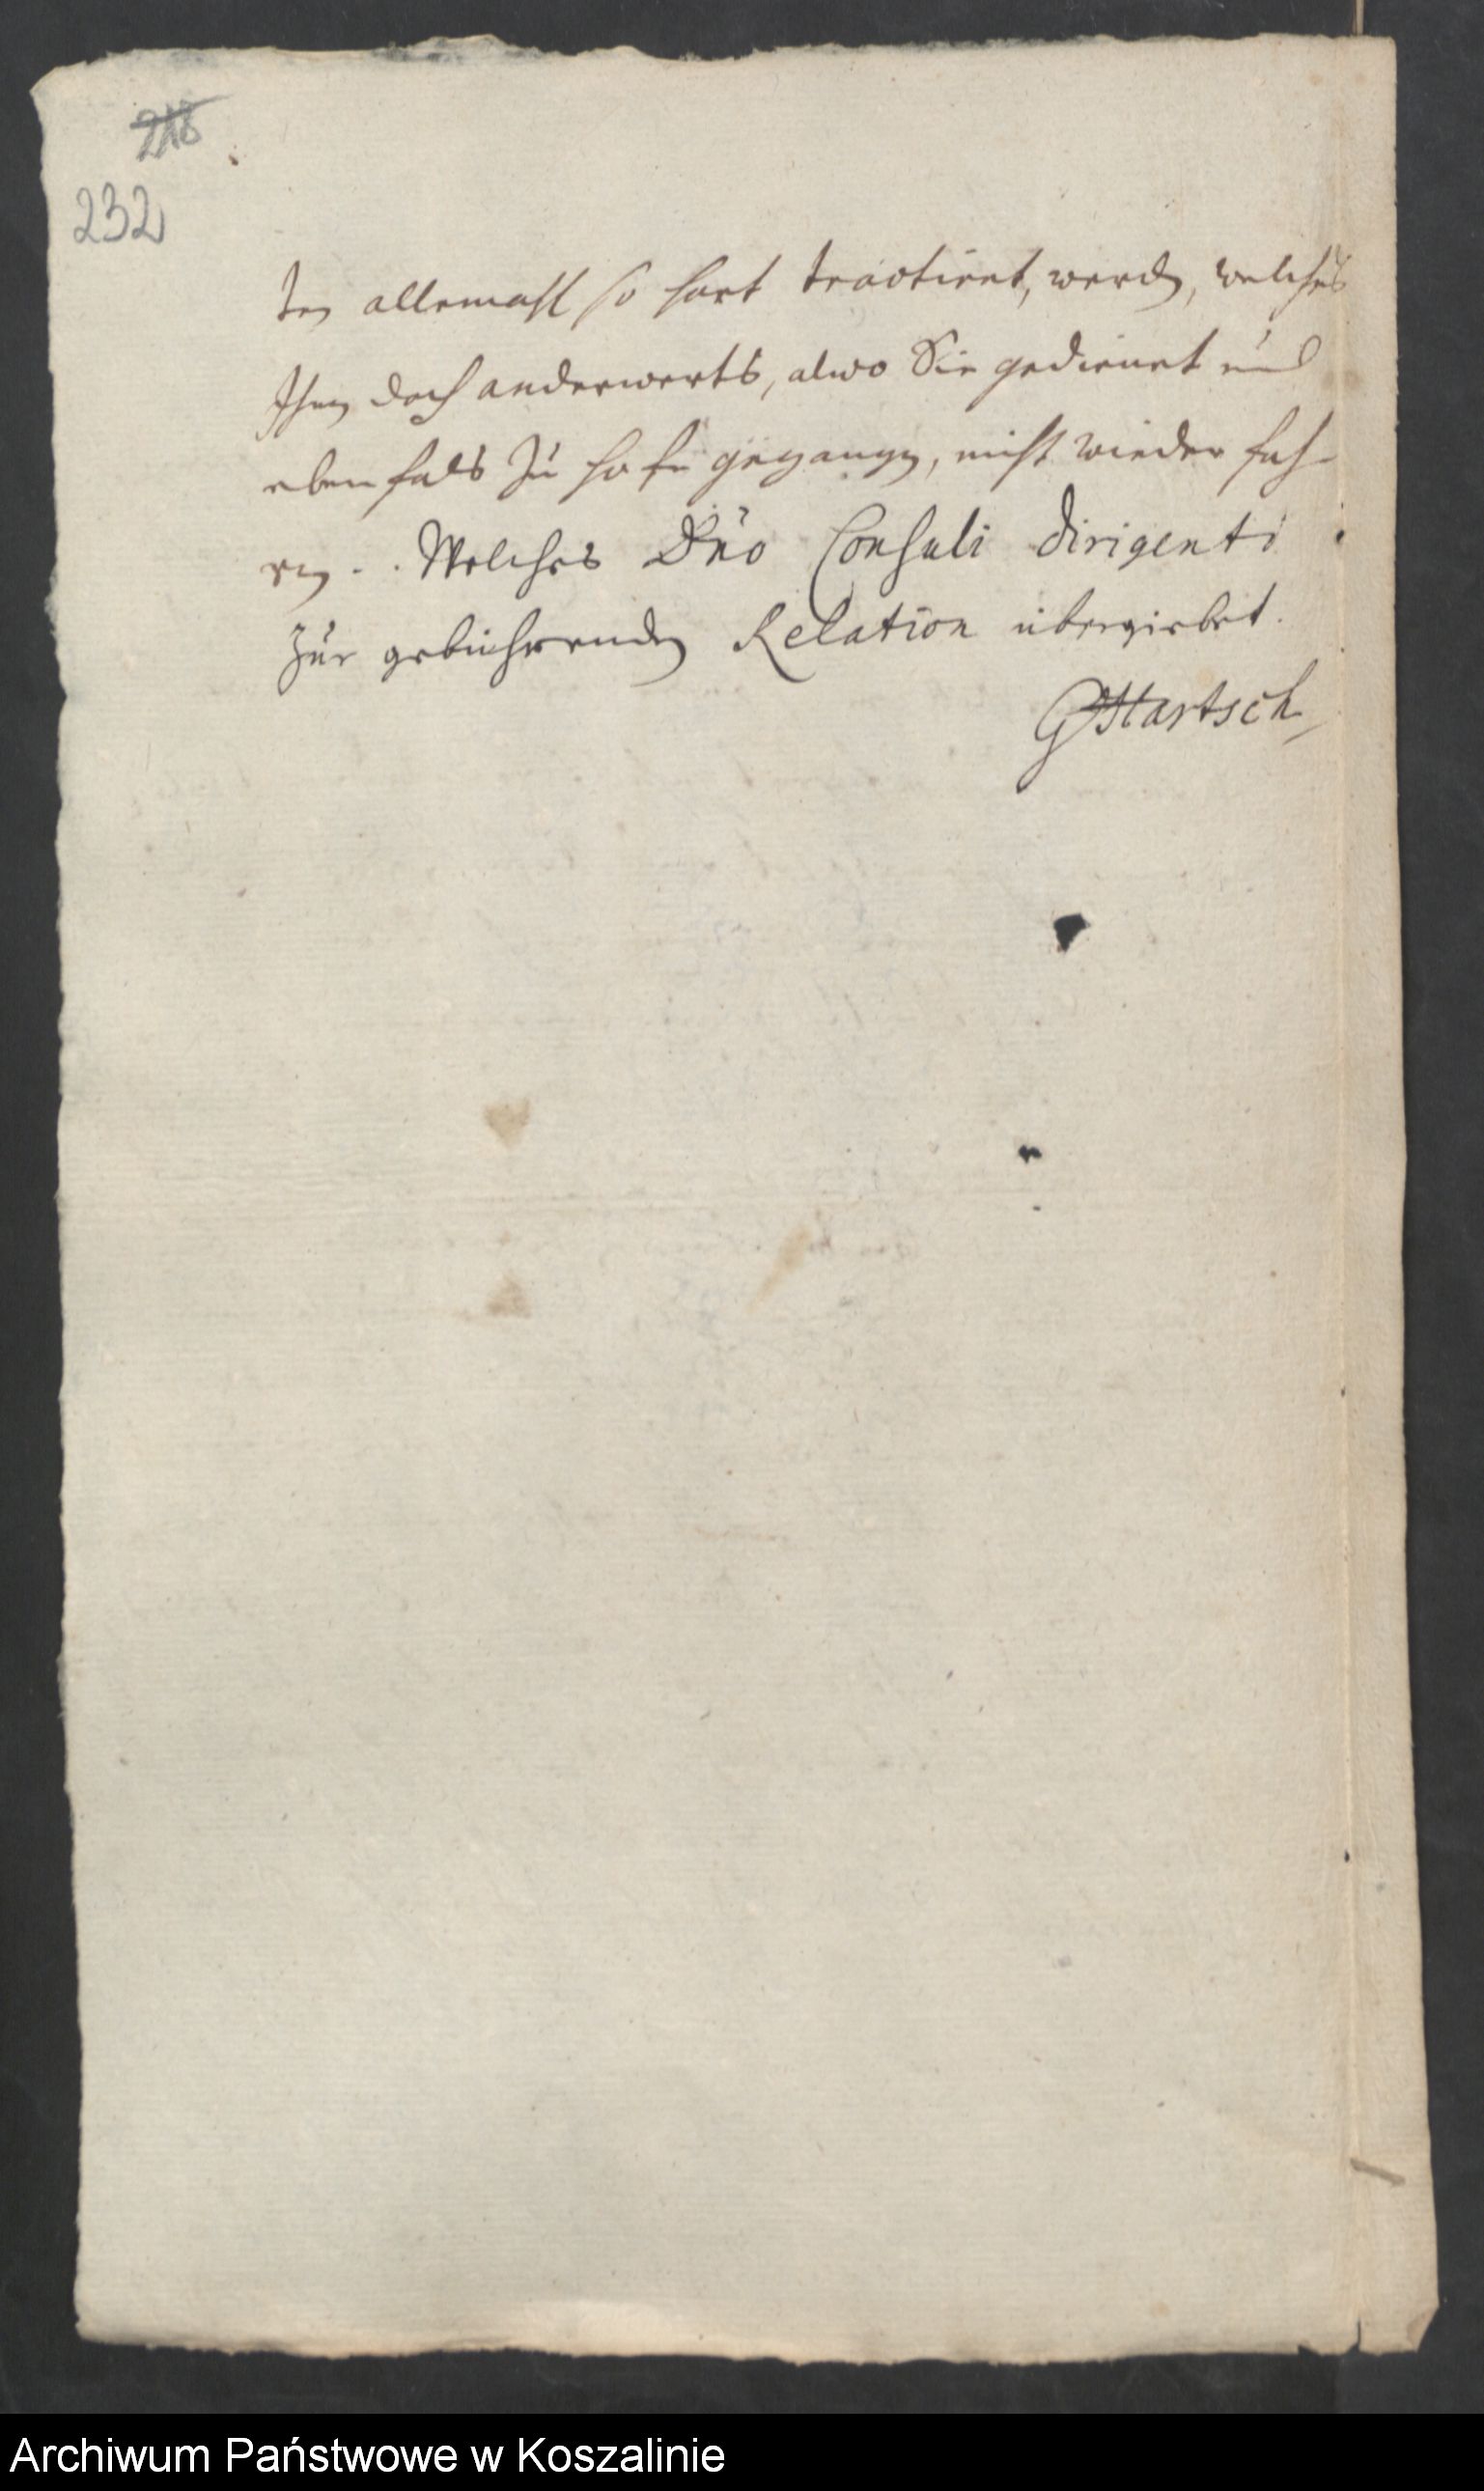 232
ten allemahl so hart tractiret, werden, welches
Ihnen doch anderwerts, alwo Sie gedienet und
eben fals zu hofe gegangen, nicht wieder fah-
ren. Welches Dno Consuli dirigenti
zur gebührenden Relation übergiebet.
Hartsch
Archiwum Państwowe w Koszalinie